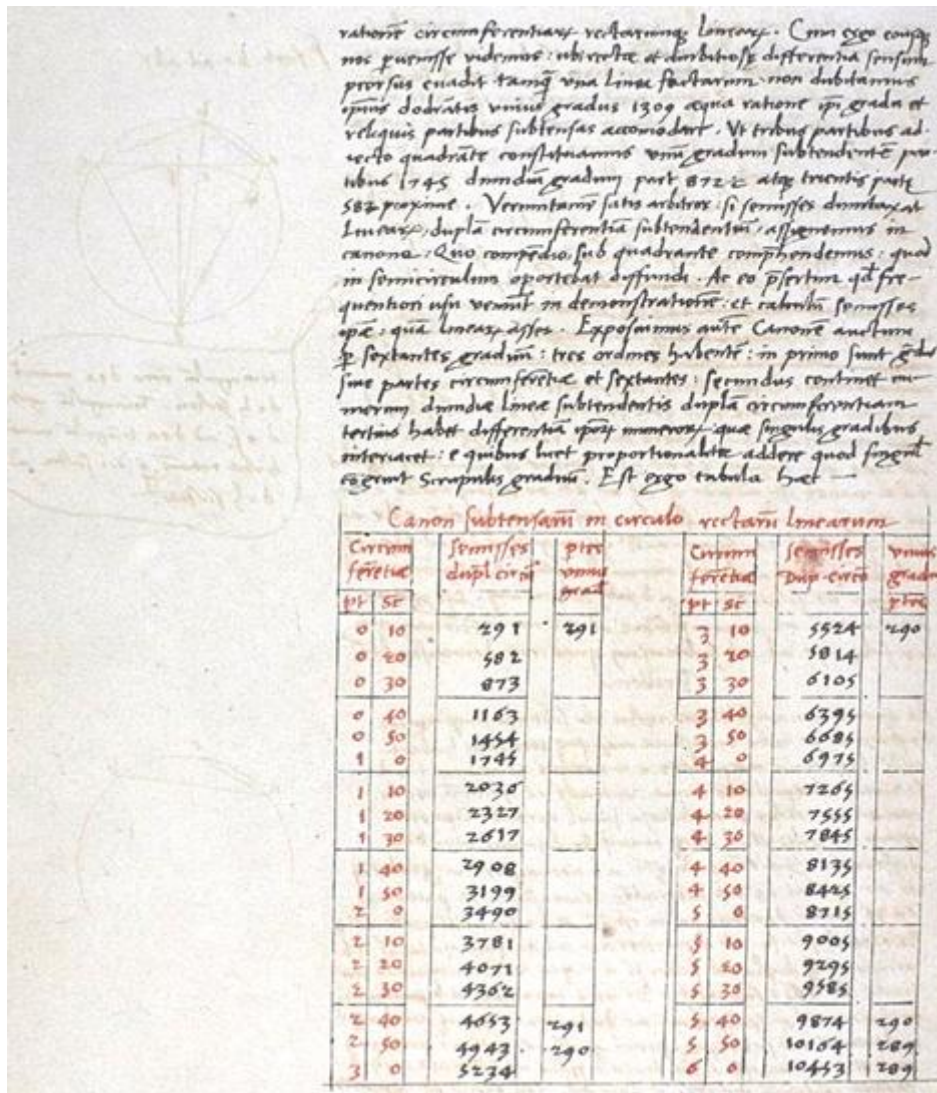 rationē circumferentiarꝝ rectarumqꝫ linearꝝ. Cum ergo eousqꝫ
nos puenisse videmus: ubi recta et ambitiosa differentia sensum
prorsus euadit tamqꝫ vna linea factarum non dubitamus
ipsius dodrātis vnius gradus 1309 æqua ratione ipi gradu et
reliquis partibus subtensas accomodare. Vt tribus partibus ad-
iecto quadrāte constituamus vnū gradum subtendentē par
tibus 1745 dimidiū gradum part 872 atqꝫ trientis partꝫ
582 proxime. Verumtamē satis arbitror: si semisses dumtaxat
Linearꝝ, duplā circumferentiā subtendentiū, assignemus in
canone: Quo compendio, sub quadrante comphendemus: quod
in semicirculum oportebat diffundi. Ac eo p̄sertim qđ fre-
quentiori usu veniūt in demonstrationē: et calculū semisses
ipæ: quā linearꝝ asses. Exposuimus autē Canonē auctum
p sextantes graduū: tres ordines habentē: in primo sunt gdus
siue partes circumferētiæ et sextantes: secundus continet nu-
merum dimidiæ lineæ subtendentis duplā circumferentiam
tertius habet differentiā ipoꝝ numerorꝝ quæ singulis gradibus
interiacet: e quibus licet proportionalitē addere quod singul
cōgruit Scrupulis graduū. Est ergo tabula hæc —
Canon subtensarū in circulo rectarū linearum
Circum ferētiæ | Semisses dupl circū | ptes vnius grad | Circum ferētiæ | semisses Dup-circū | vnius gradu ptes
pt | sc | pt | sc
0 10 291 291 3 10 5524 290
0 20 582 3 20 5814
0 30 873 3 30 6105
0 40 1163 3 40 6395
0 50 1454 3 50 6685
1 0 1745 4 0 6975
1 10 2036 4 10 7265
1 20 2327 4 20 7555
1 30 2617 4 30 7845
1 40 2908 4 40 8135
1 50 3199 4 50 8425
2 0 3490 5 0 8715
2 10 3781 5 10 9005
2 20 4071 5 20 9295
2 30 4362 5 30 9585
2 40 4653 291 5 40 9874 290
2 50 4943 290 5 50 10164 289
3 0 5234 6 0 10453 289